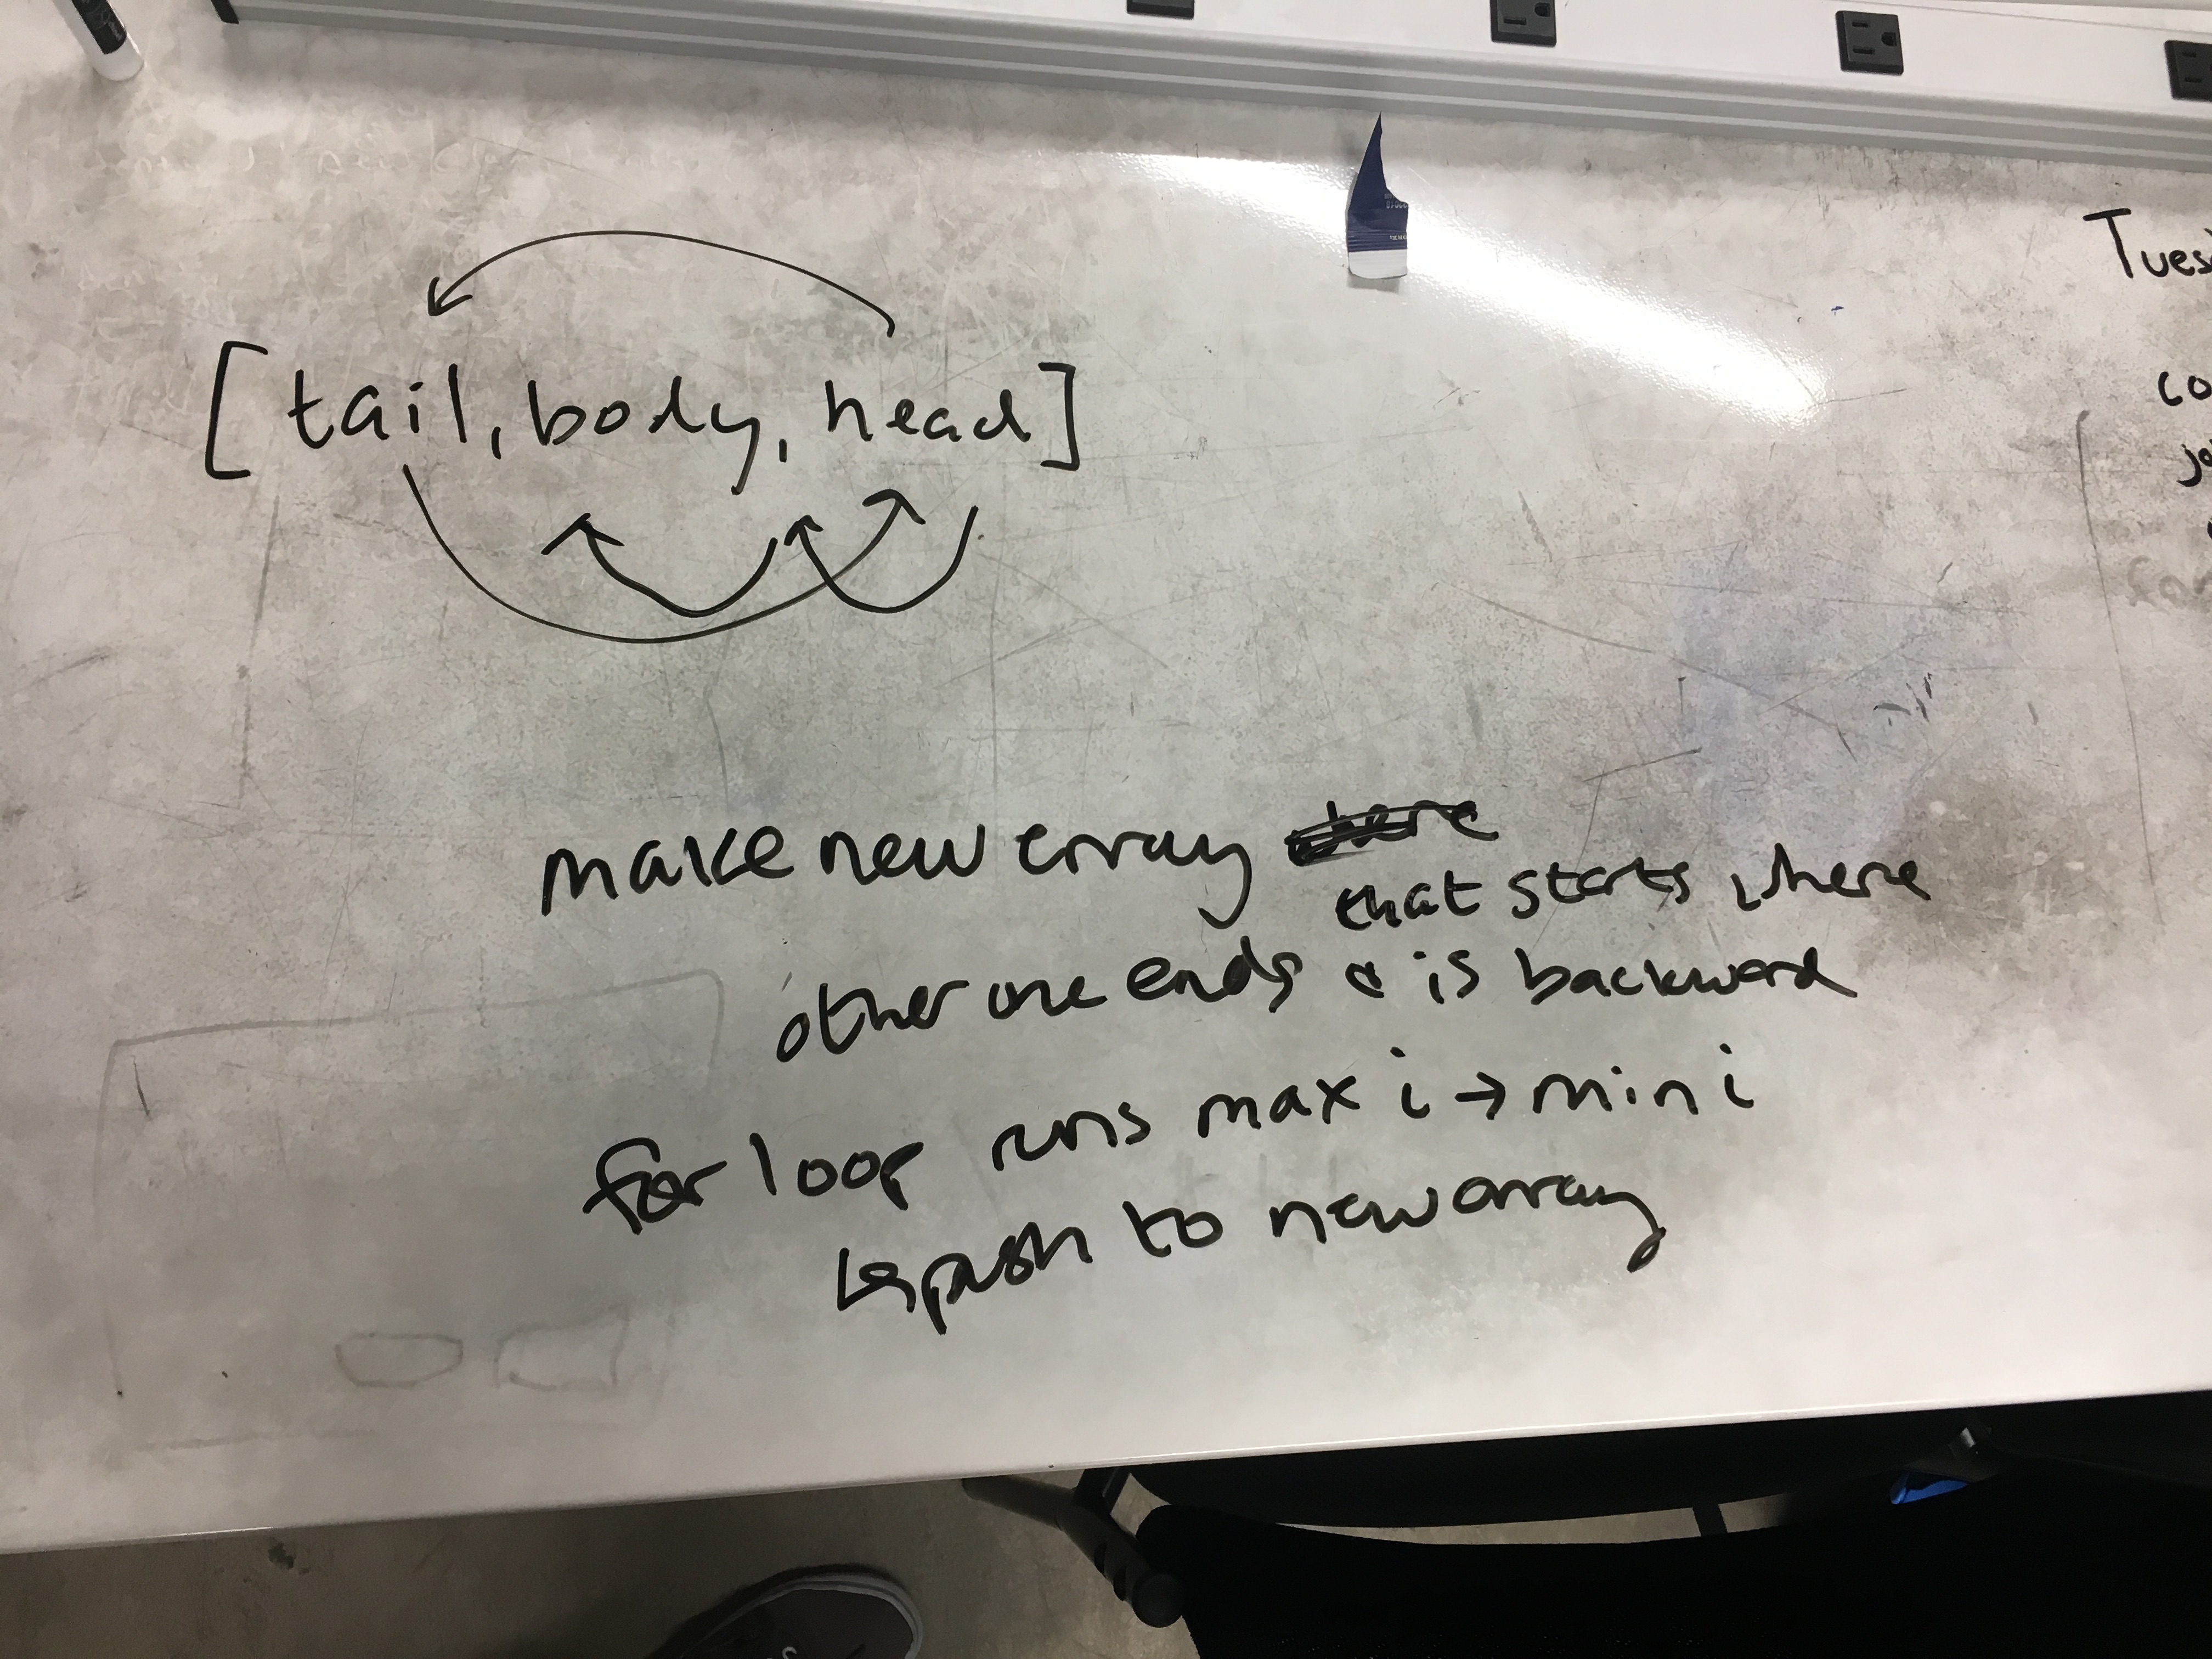 [tail, body, head]
make new array that starts where
other one ends & is backward
for loop runs max i → min i
↳ push to new array
Tues